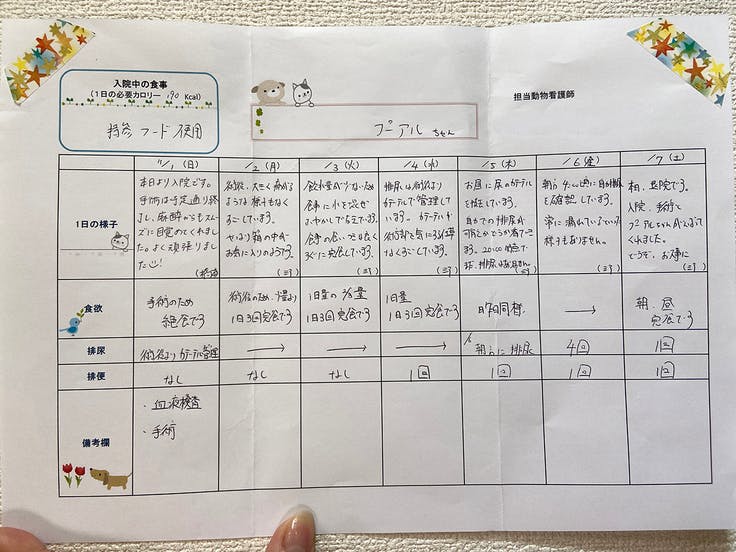 入院中の食事
(1日の必要カロリー 190 Kcal)
持参フード使用
プーアル ちゃん
担当動物看護師
11/1 (日)
/2 (月)
/3 (火)
/4 (水)
/5 (木)
/6 (金)
/7 (土)
1日の様子
本日より入院です。
手術は予定通り終
了し、麻酔からもスムー
ズに目覚めてくれまし
た。よく頑張りまし
た
術後、大きく
ような様子もなく
すごしています。
やはり箱の中が
お気に入りのようです。
(三澤)
飲水量が少ないため
食事に水を混ぜ
ふやかして与えています。
食事の食いつきはよく
すぐに完食しています。
排尿は術後より
カテーテルで管理して
います。カテーテルや
術部を気にする様子
なくすごしています。
お昼に尿のカテーテル
を抜去しています。
自力での排尿が
可能かどうか看て
います。20:00時点で
朝から4:00頃に自力排尿
を確認しています。
常に漏れているという
様子もありません。
本日、退院です。
入院、手術と
プーアルちゃんがんばって
くれました。
どうぞ、お大事に
食欲
手術のため
絶食です
術後のため、少量より
1日3回完食です
1日量の
1日3回完食です
1日量
1日3回完食です
昨日同様.
→
朝、昼
完食です
排尿
術後よりカテーテル管理
→
→
→
朝方に排尿
4回
1回
排便
なし
なし
なし
1回
1回
1回
1回
備考欄
・血液検査
・手術